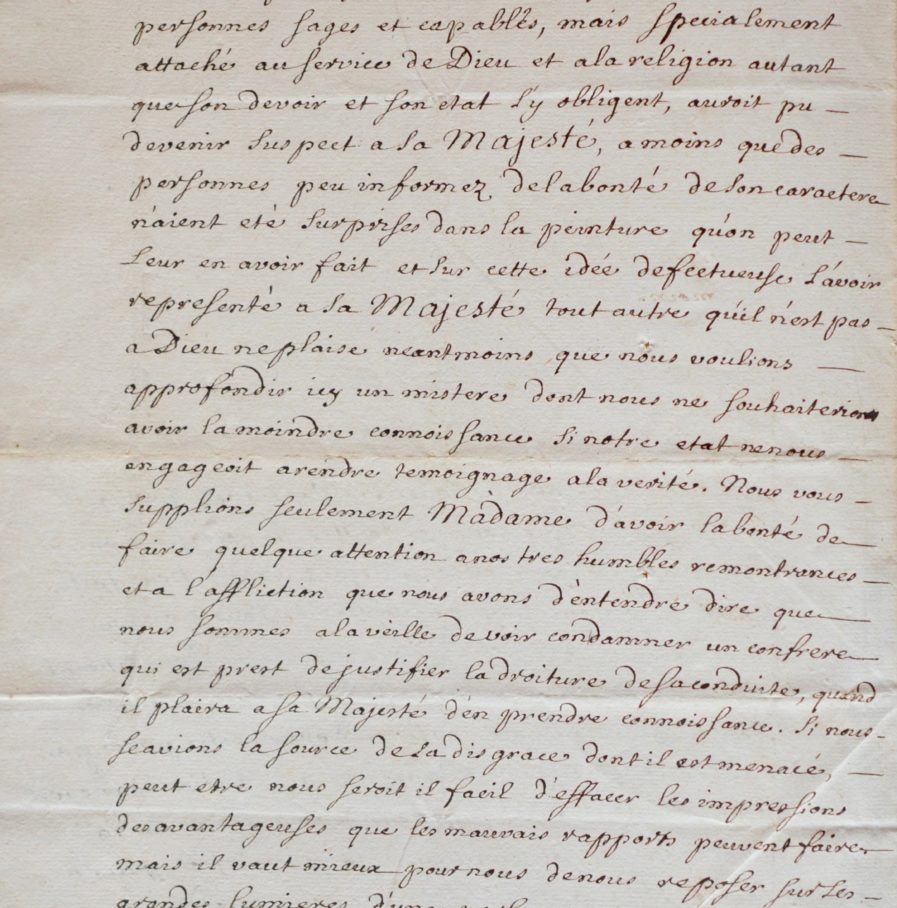 personnes sages et capables, mais specialement
attaché au service de Dieu et a la religion autant
que son devoir et son etat l'y obligent, auroit pu —
devenir suspect a Sa Majesté, a moins que des —
personnes peu informez de la bonté de son caractere
n'aient eté surprises dans la peinture qu'on peut —
leur en avoir fait et sur cette idée defectueuse l'avoir
representé a sa Majesté tout autre qu'il n'est pas —
a Dieu ne plaise neantmoins que nous voulions —
approfondir icy un mistere dont nous ne souhaiterions
avoir la moindre connoissance si notre etat ne nous —
engageoit a rendre temoignage a la verité. Nous vous —
supplions seulement Madame d'avoir la bonté de —
faire quelque attention a nos tres humbles remontrances —
et a l'affliction que nous avons d'entendre dire que —
nous sommes a la veille de voir condamner un confrere —
qui est prest de justifier la droiture de sa conduite, quand
il plaira a sa Majesté d'en prendre connoissance. Si nous —
scavions la source de la disgrace dont il est menacé, —
peut etre nous seroit il facil d'effacer les impressions
desavantageuses que les mauvais rapports peuvent faire —
mais il vaut mieux pour nous de nous reposer sur les —
grandes lumieres d'une